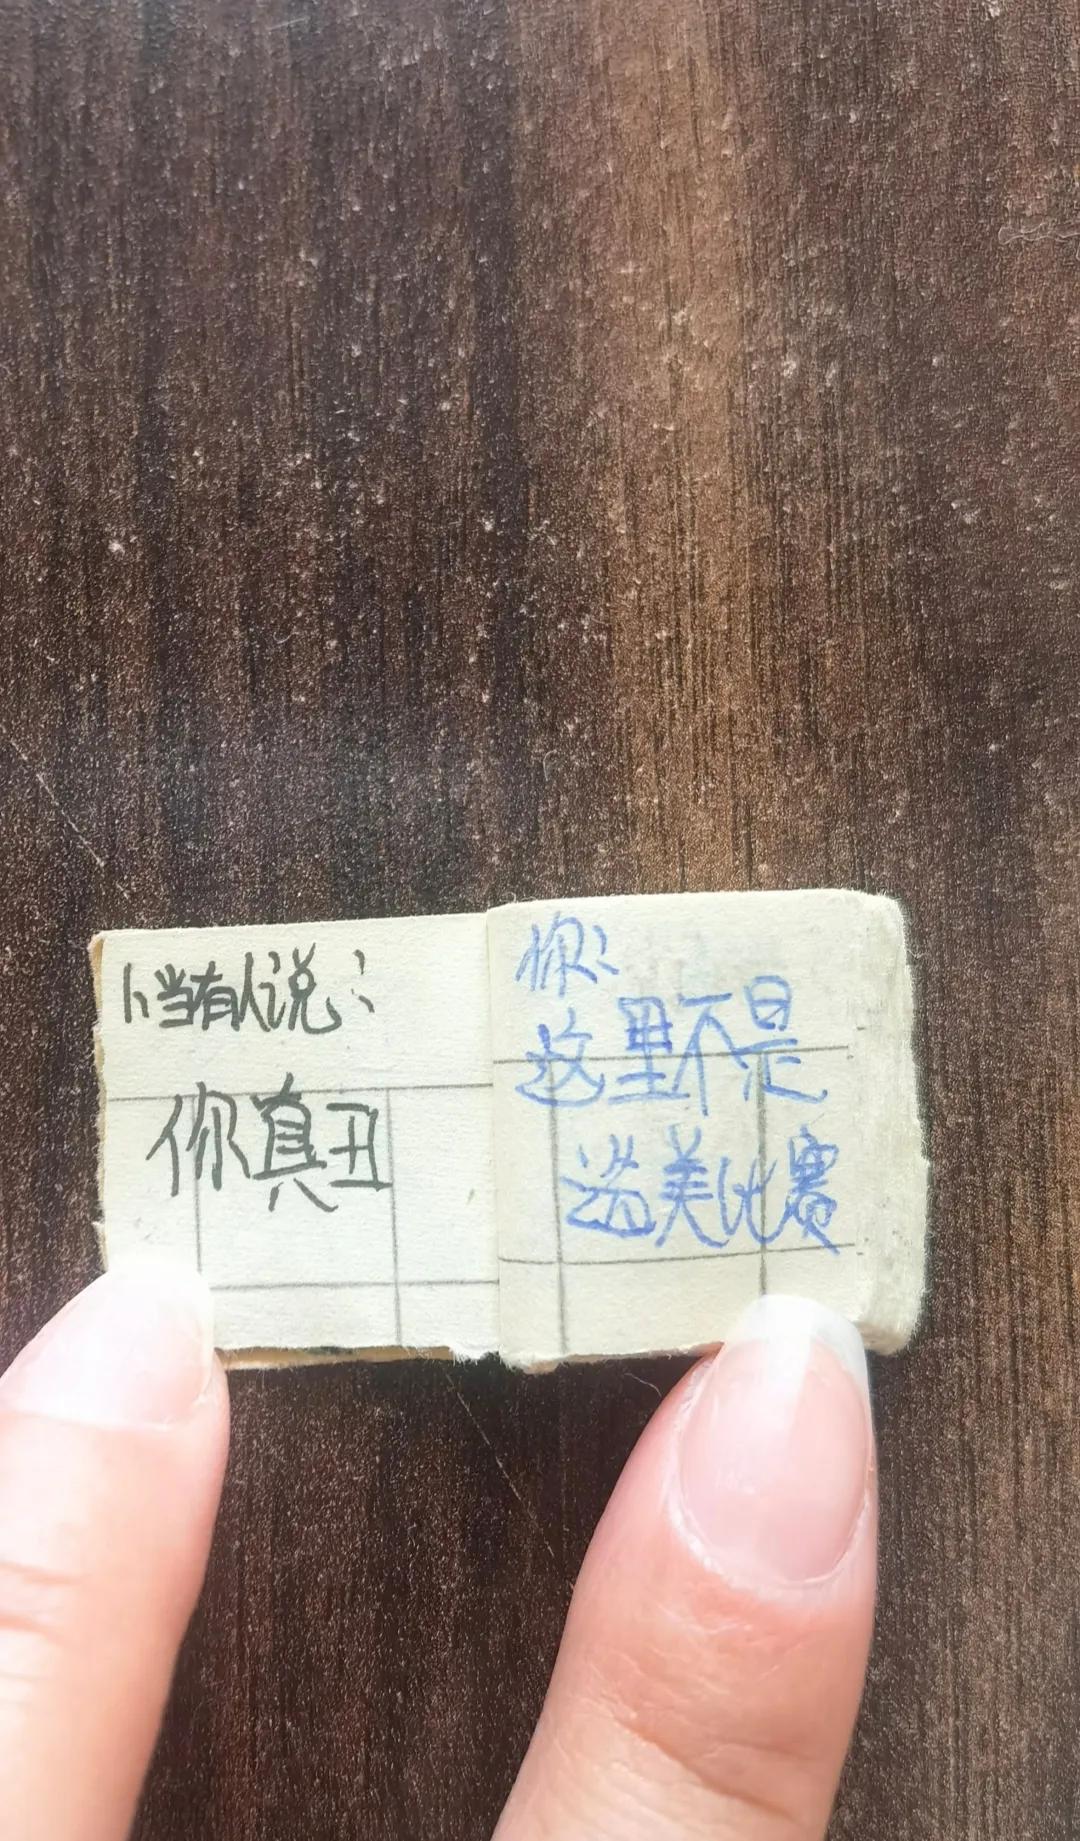 1、当有人说：
你真丑
你：
这里不是
选美比赛